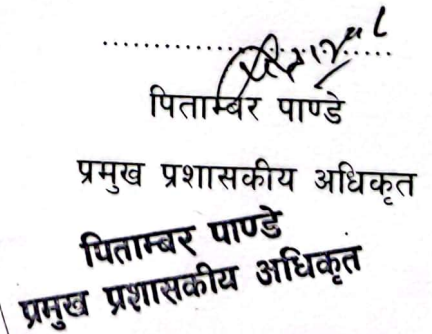 पिताम्बर पाण्डे
प्रमुख प्रशासकीय अधिकृत
पिताम्बर पाण्डे
प्रमुख प्रशासकीय अधिकृत